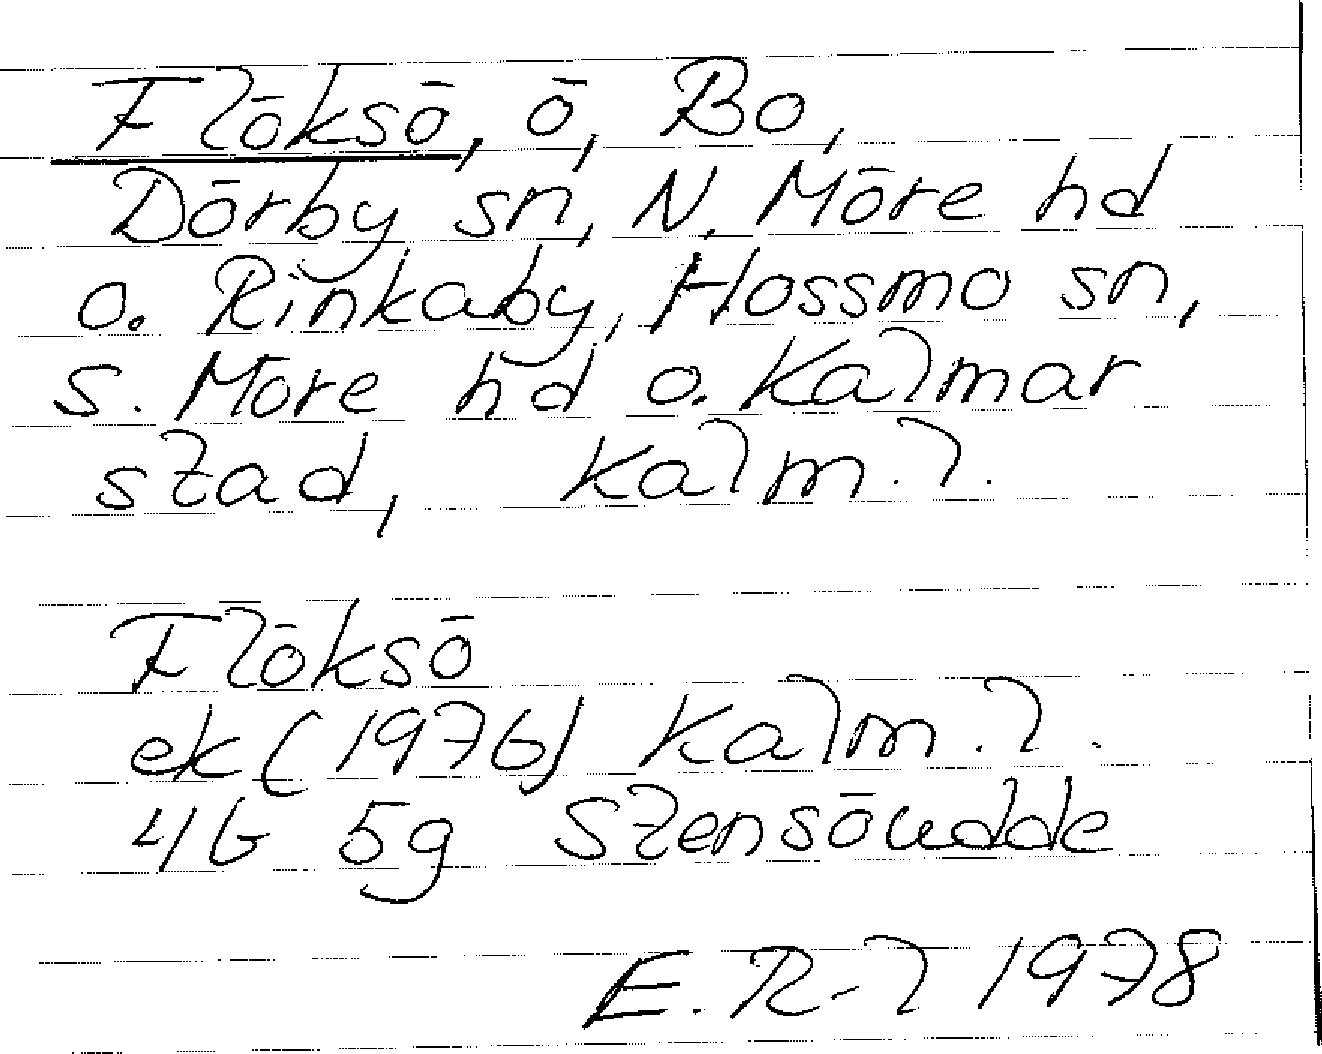 Flöksö, ö, Bo,
Dörby sn, N. Möre hd
o. Rinkaby, Hossmo sn,
S. Möre hd o. Kalmar
stad, Kalm. l.
Flöksö
ek (1976) Kalm. l.
4G 5g Stensöudde
E. R-l 1978